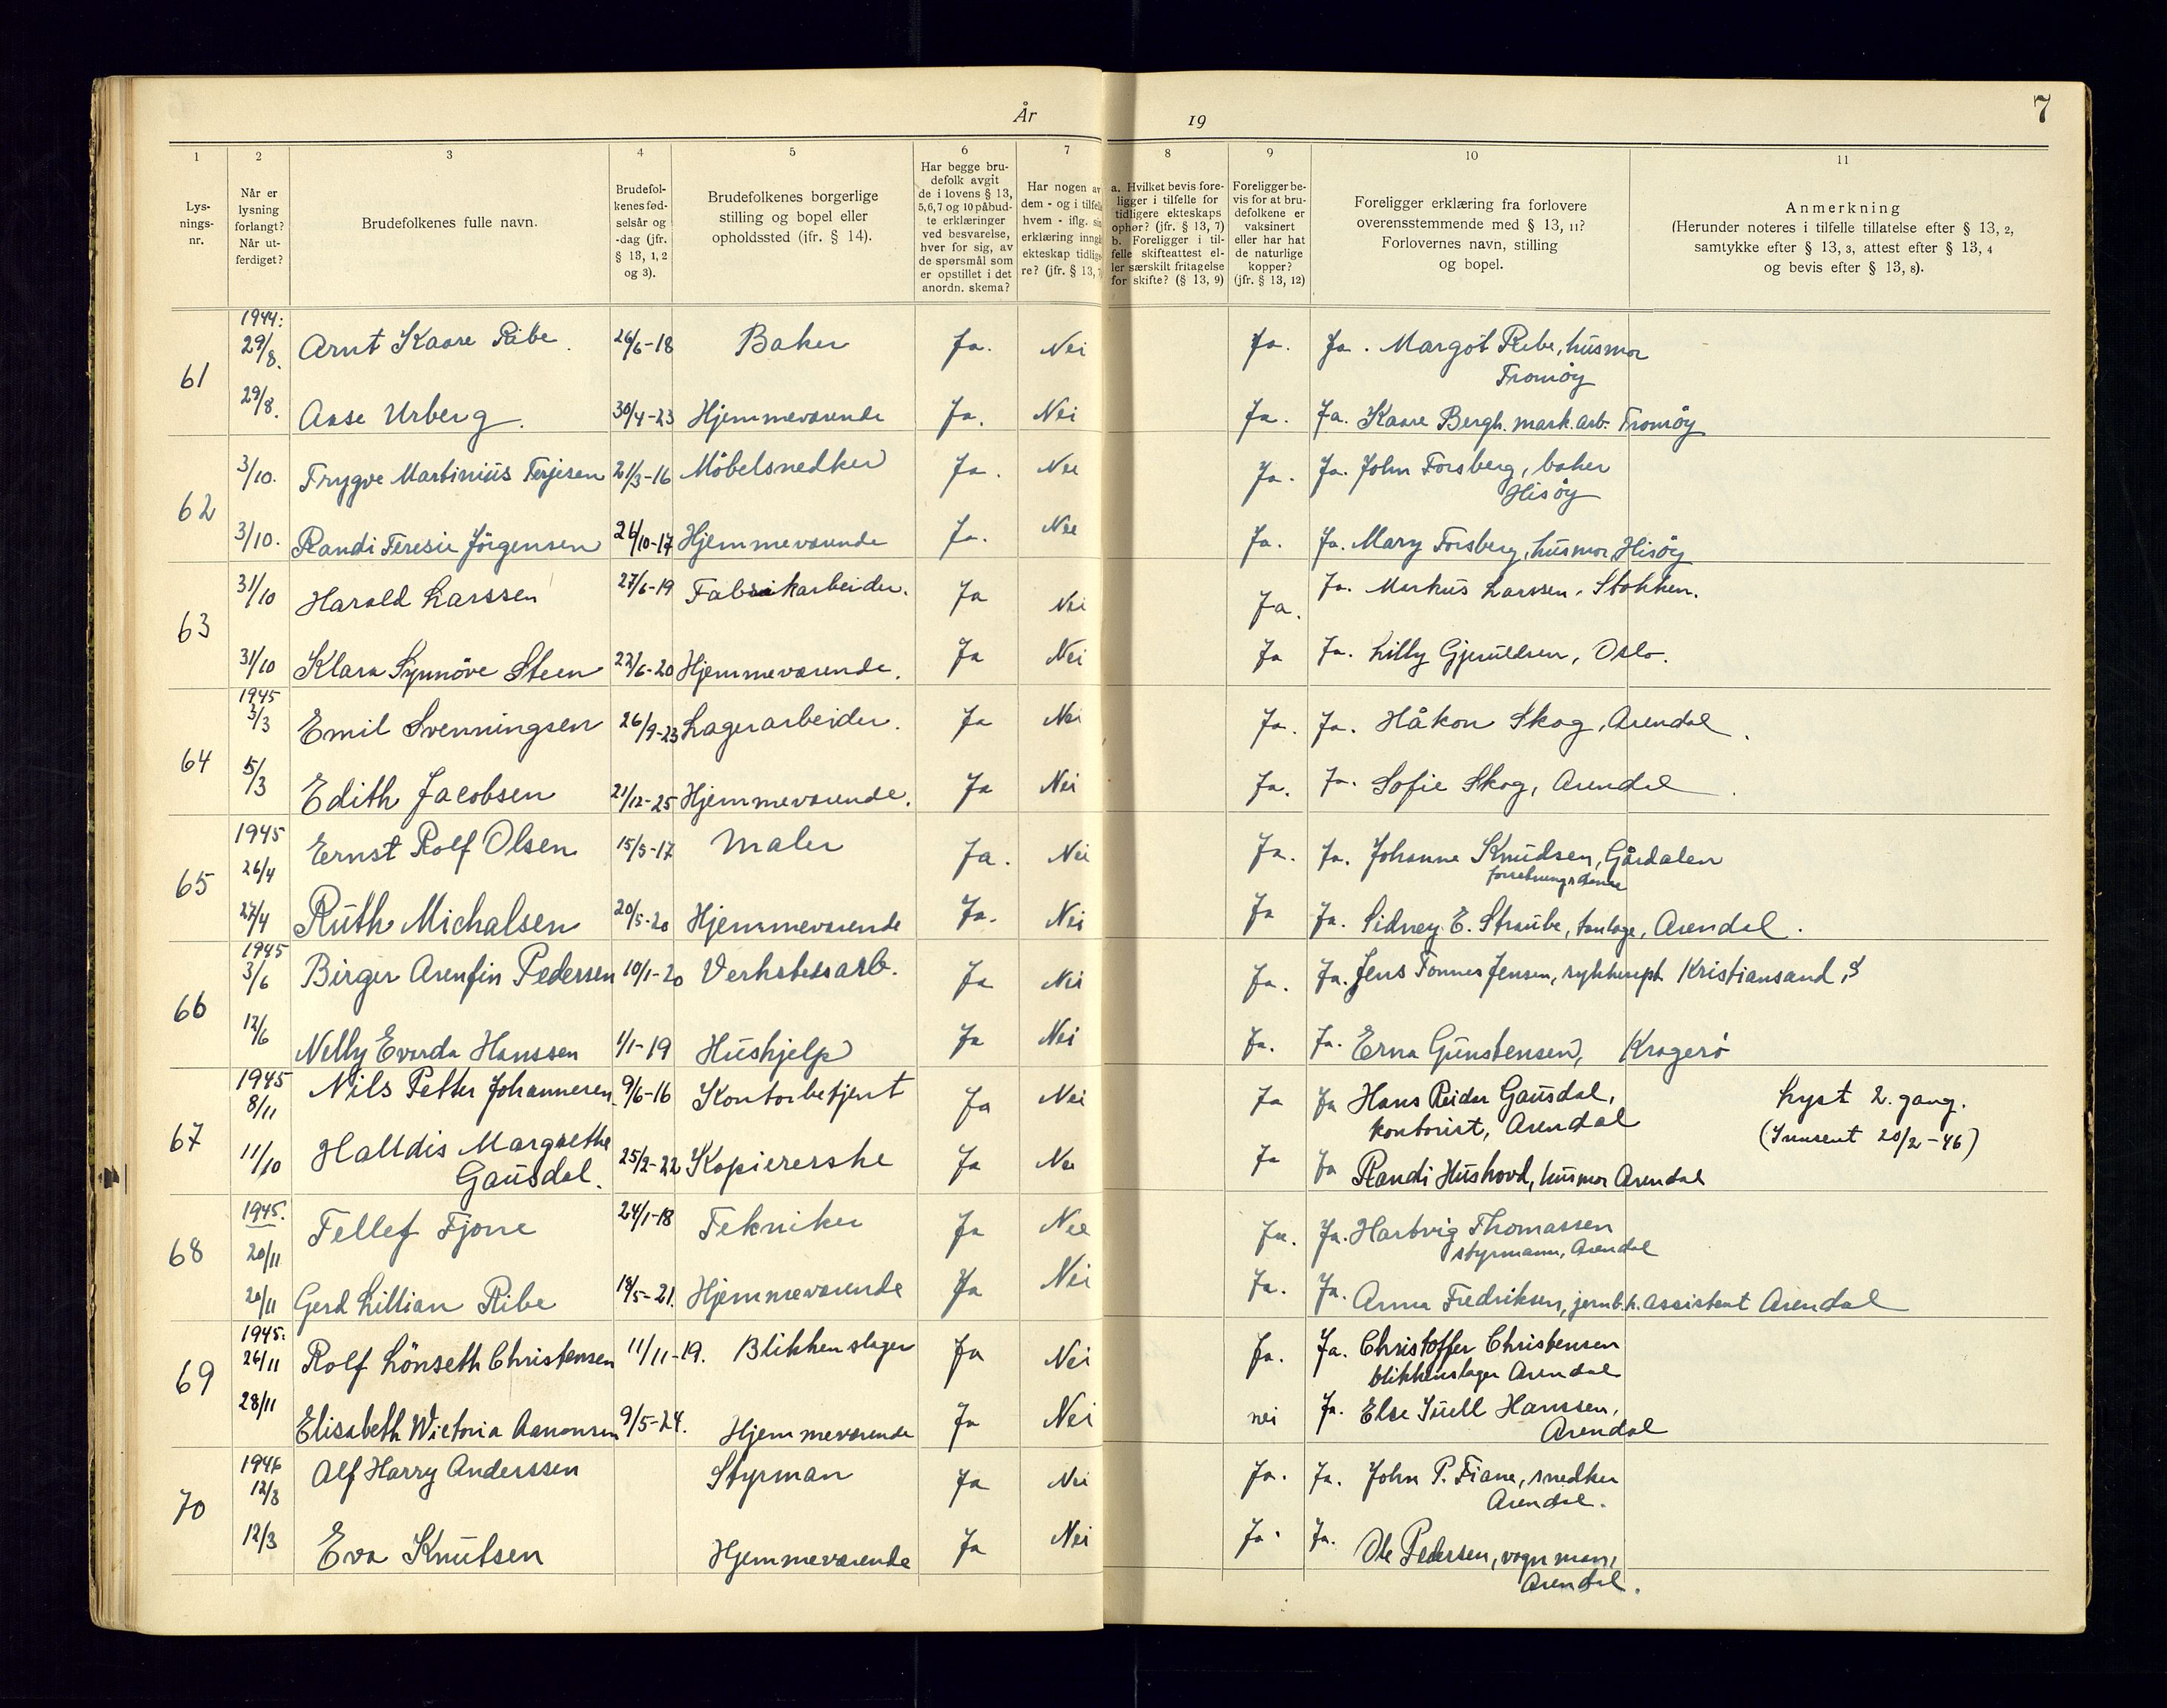 År 19
7
1 2 3 4 5 6 7 8 9 10 11
Lys-
nings-
nr.
Når er
lysning
forlangt?
Når ut-
ferdiget?
Brudefolkenes fulle navn.
Brudefol-
kenes fød-
selsår og
-dag (jfr.
§ 13, 1, 2
og 3).
Brudefolkenes borgerlige
stilling og bopel eller
opholdssted (ifr. § 14).
Har begge bru-
defolk avgit
de i lovens § 13,
5,6,7 og 10 påbud-
te erklæringer
ved besvarelse,
hver for sig, av
de spørsmål som
er opstillet i det
anordn. skema?
Har nogen av
dem - og i tilfelle
hvem - iflg. sin
erklæring inngå
ekteskap tidlige
re? (jfr. § 13, 7
a. Hvilket bevis fore-
ligger i tilfelle for
tidligere ekteskaps
ophør? (jfr. § 13, 7)
b. Foreligger i til-
felle skifteattest el-
ler særskilt fritagelse
for skifte? (§ 13, 9)
Foreligger be-
vis for at bru-
defolkene er
vaksinert
eller har hat
de naturlige
kopper?
(jfr. § 13, 12)
Foreligger erklæring fra forlovere
overensstemmende med § 13, 11?
Forlovernes navn, stilling
og bopel.
Anmerkning
(Herunder noteres i tilfelle tillatelse efter § 13, 2,
samtykke efter § 13, 3, attest efter § 13, 4
og bevis efter § 13, 8).
1944:
61 29/8. Arnt Kaare Ribe. 26/6-18 Baker Ja. Nei Ja. Ja. Margot Ribe, husmor
Tromøy
29/8. Aase Urberg. 30/4-23 Hjemmeværende Ja. Nei Ja. Ja. Kaare Bergh. mark. arb. Tromøy
62 3/10. Trygve Martinius Terjesen 21/3-16 Møbelsnedker Ja. Nei Ja. Ja. John Forsberg, baker
Hisøy
3/10. Randi Teresie Jörgensen 24/10-17 Hjemmeværende Ja. Nei Ja. Ja. Mary Forsberg, husmor Hisøy
63 31/10 Harald Larssen 27/6-19 Fabrikarbeider. Ja Nei Ja. Ja. Markus Larssen, Stokken.
31/10 Klara Synnöve Steen 22/6-20 Hjemmeværende. Ja Nei Ja Ja. Lilly Gjeruldsen, Oslo.
1945
64 3/3 Emil Svenningsen 26/9-23 Lagerarbeider. Ja Nei Ja. Ja. Håkon Skog, Arendal.
5/3 Edith Jacobsen 21/12-25 Hjemmeværende. Ja Nei Ja. Ja. Sofie Skog, Arendal.
1945
65 26/4 Ernst Rolf Olsen 15/5-17 Maler Ja. Nei Ja. Ja. Johanne Knudsen, Gårdalen
27/4 Ruth Michalsen 20/5-20 Hjemmeværende Ja. Nei Ja Ja. Sidney E. Straube, tanlæge, Arendal.
1945
66 3/6 Birger Arenfin Pedersen 10/1-20 Verkstedsarb. Ja Nei Ja. Ja. Jens Tonnes Jensen, Kristiansand, S
12/6 Nelly Evarda Hanssen 1/1-19 Hushjelp Ja Nei Ja. Ja. Erna Gunstensen, Kragerö
1945
67 8/11 Nils Petter Johannesen 9/6-16 Kontorbetjent Ja Nei Ja Ja Hans Reidar Gausdal,
kontorist, Arendal
Lyst 2. gang.
(Innsent 20/2-46)
11/10 Halldis Margrethe
Gausdal. 25/2-22 Kopiererske Ja Nei Ja Ja Randi Hushovd, husmor Arendal
1945.
68 20/11 Tellef Fjone 24/1-18 Tekniker Ja Nei Ja. Ja. Hartvig Thomassen
styrmann, Arendal
20/11 Gerd Lillian Ribe 18/5-21. Hjemmeværende Ja Nei Ja. Ja. Anna Fredriksen, jernb.h. assistent Arendal
1945:
69 26/11 Rolf Lönseth Christensen 11/11-19. Blikkenslager Ja Nei Ja. Ja. Christoffer Christensen
blikkenslager Arendal
28/11 Elisabeth Wictoria Aanonsen 9/5-24. Hjemmeværende Ja Nei nei Ja. Else Juell Hanssen,
Arendal
1946
70 12/3 Alf Harry Anderssen Styrman Ja Nei Ja. Ja. John P. Fiane, snedker
Arendal.
12/3 Eva Knutsen Hjemmeværende Ja Nei Ja. Ja. Ole Pedersen, vognman,
Arendal.